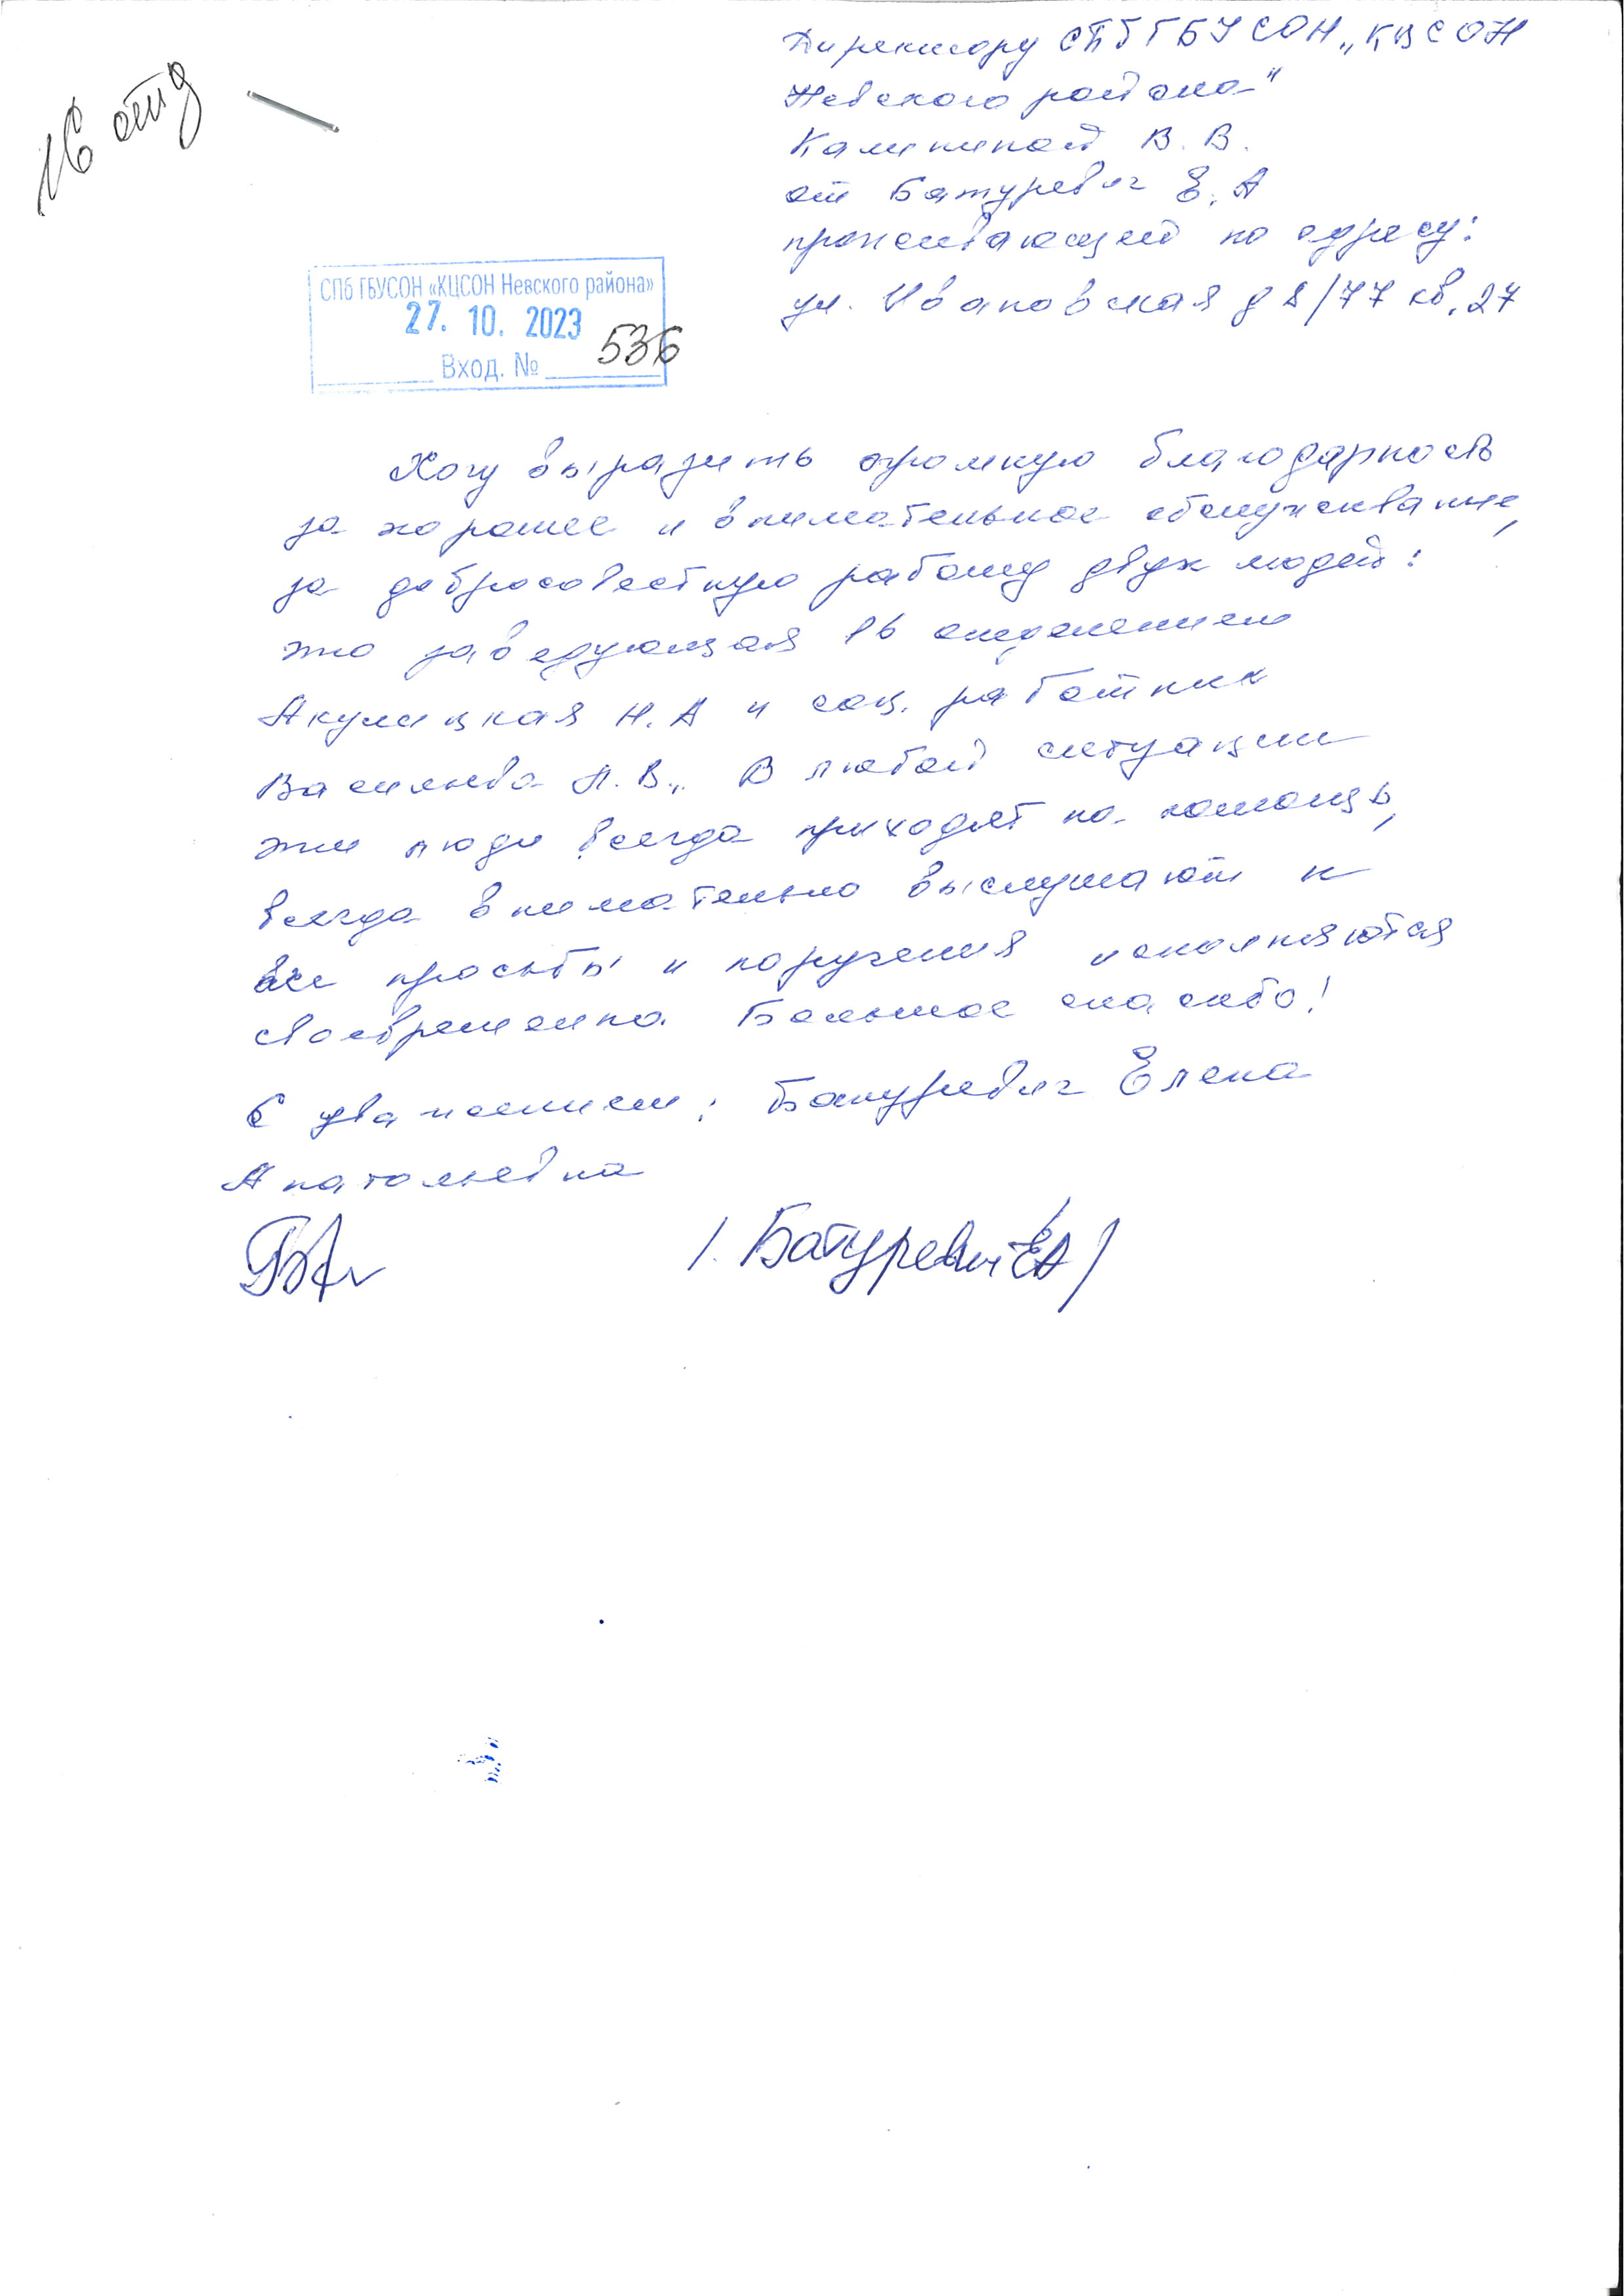 16 отд
Директору СПБ ГБУСОН „КЦСОН
Невского района"
Калининой В. В.
от Батуревич Е. А
проживающей по адресу:
ул. Ивановская д 8/77 кв. 27
СПб ГБУСОН «КЦСОН Невского района»
27. 10. 2023
Вход. № 536
Хочу выразить огромную благодарность
за хорошее и внимательное обслуживание,
за добросовестную работу двух людей:
это заведующая 16 отделением
Акулицкая Н. А и соц. работник
Васильева Л. В.. В любой ситуации
эти люди всегда приходят на помощь,
всегда внимательно выслушают и
все просьбы и поручения исполняются
своевременно. Большое спасибо!
С уважением: Батуревич Елена
Анатольевна
/. Батуревич ЕА /